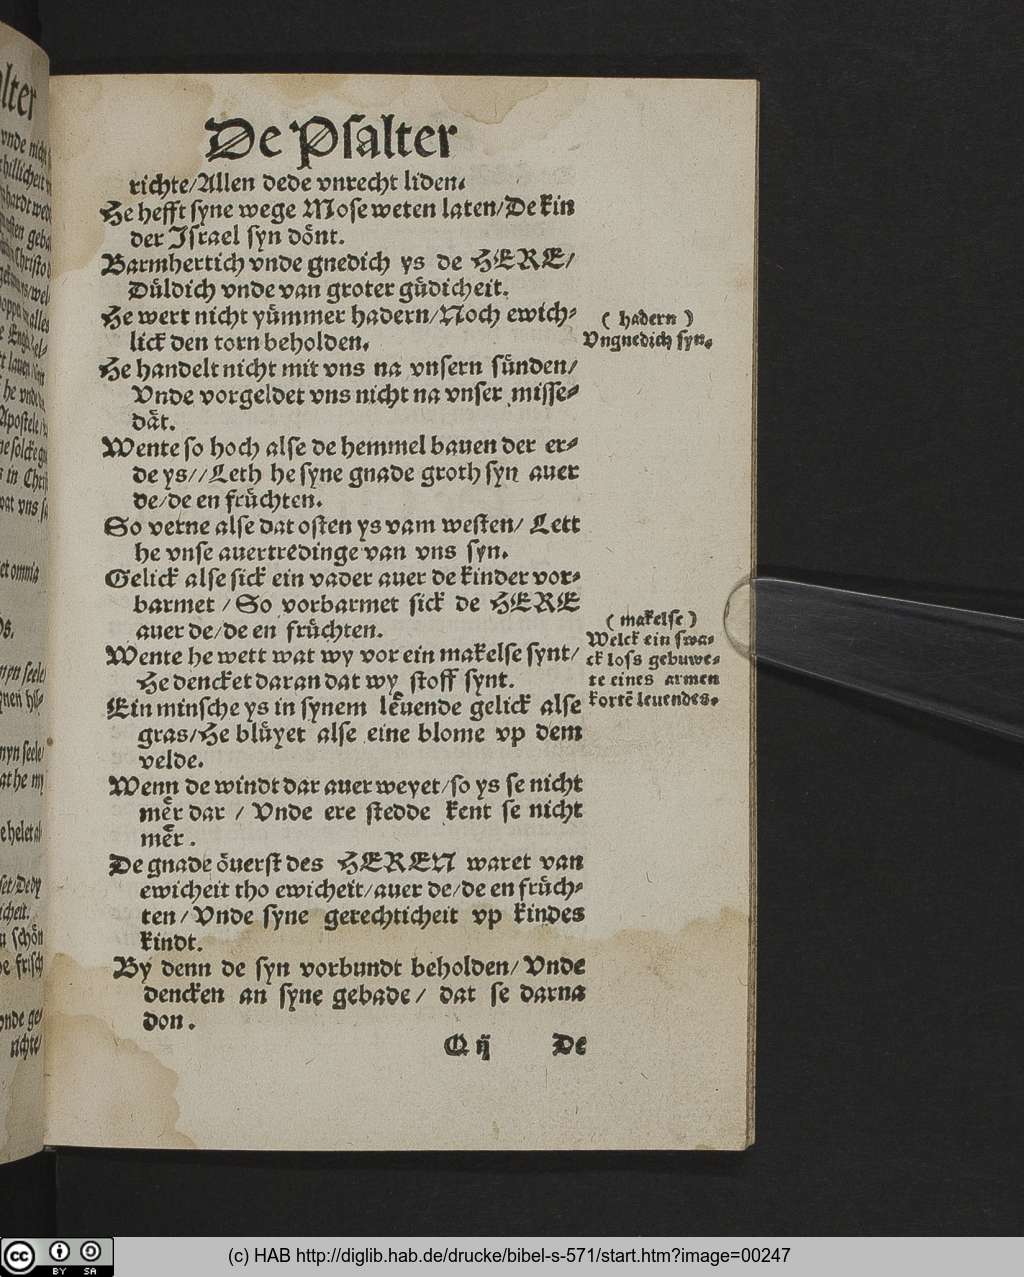 De Psalter
richte/Allen dede vnrecht liden.
He hefft syne wege Mose weten laten/De kin
der Israel syn dönt.
Barmhertich vnde gnedich ys de HERE/
Düldich vnde van groter güdicheit.
He wert nicht yümmer hadern/Noch ewich-
lick den torn beholden.
He handelt nicht mit vns na vnsern sünden/
Vnde vorgeldet vns nicht na vnser misse-
dät.
Wente so hoch alse de hemmel bauen der er-
de ys//Leth he syne gnade groth syn auer
de/de en früchten.
So verne alse dat osten ys vam westen/ Lett
he vnse auertredinge van vns syn.
Gelick alse sick ein vader auer de kinder vor-
barmet /So vorbarmet sick de HERE
auer de/de en früchten.
Wente he wett wat wy vor ein makelse synt/
He dencket daran dat wy stoff synt.
Ein minsche ys in synem leuende gelick alse
gras/He blüyet alse eine blome vp dem
velde.
Wenn de windt dar auer weyet/so ys se nicht
mer dar / Vnde ere stedde kent se nicht
mer.
De gnade öuerst des HEREN waret van
ewicheit tho ewicheit/auer de/de en früch-
ten/Vnde syne gerechticheit vp kindes
kindt.
By denn de syn vorbundt beholden/Vnde
dencken an syne gebade/ dat se darna
don.
Q ij De
( hadern )
Vngnedich syn.
( makelse )
Welck ein swa-
ck loss gebuwe-
te eines armen
kortē leuendes.
(c) HAB http://diglib.hab.de/drucke/bibel-s-571/start.htm?image=00247
cc BY SA